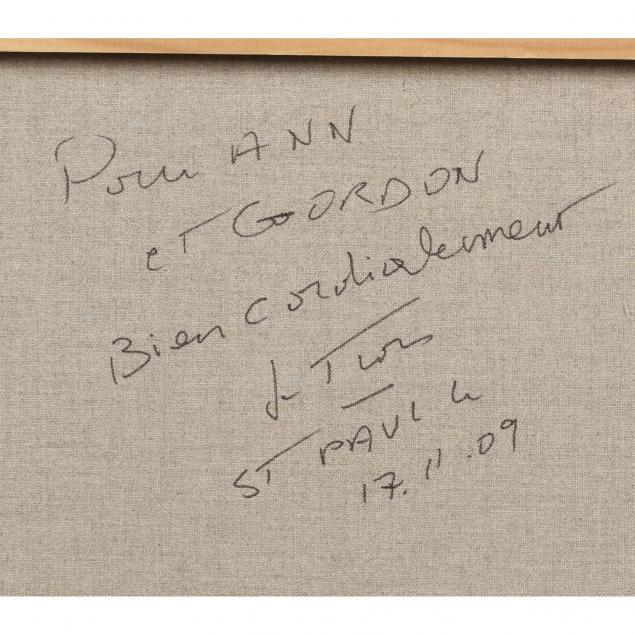 Pour ANN
et GORDON
Bien cordialement
ST PAUL le
17.11.09